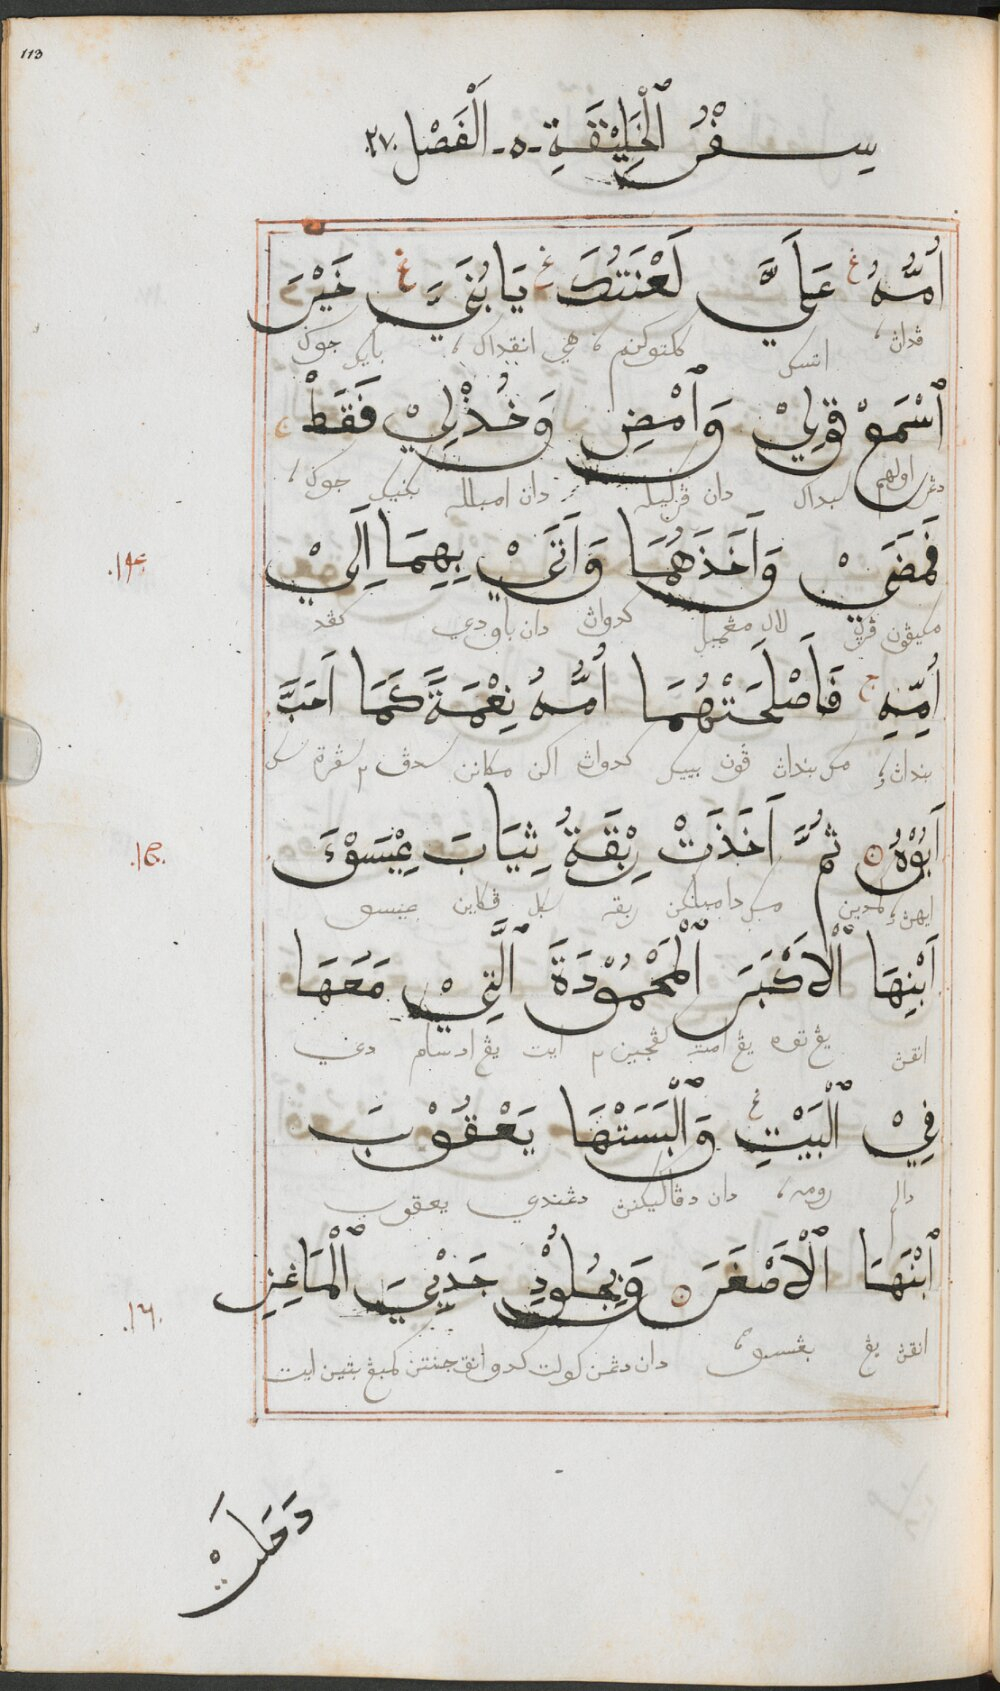 113
سِفْرُ ٱلْخَلِيْقَةِ - ه - اَلْفَصْلُ ٢٧.
اُمُّهُ عَلَيَّ لَعْنَتُكَ يَا بُنَيَّ غَيْرَ
اتسكو كتوكنم ، هي انقداكو ، بايك جوك
اَسْمَعْ قَوْلِيْ وَاَمْضِ وَخُذْ لِيْ فَقَطْ
دڠر اولهم كبداكو دان ڤرݢيله دان امبيله بݢيكو جوك ،
.١٤. فَمَضَيْ وَاَخَذَهُمَا وَاَتَيْ بِهِمَا اِلَيْ
مكيڤون ڤرݢي لالو مڠمبيل كدواڽ دان باو دي كڤد
اُمِّهِ فَاَصْلَحَتْهُمَا اُمُّهُ نِعْمَةً كَمَا اَحَبَّ
بنداڽ مك بنداڽ ڤون بيك كدواڽ اكن مكانن سدڤ ٢ سڤرة
.١٥. اَبُوْهُ ثُمَّ اَخَذَتْ رِبْقَةُ ثِيَابَ عِيْسَوْءَ
ايهڽ كمدين مك دامبيلكن ربقه ڤكاين عيسو
اَبْنِهَا ٱلْاَكْبَرَ ٱلْمَحْمُوْدَةَ ٱلَّتِيْ مَعَهَا
انقڽ يڠ توه يڠ امت ايت يڠ اد سام دڠي
فِيْ ٱلْبَيْتِ وَٱلْبَسَتْهَا يَعْقُوْبَ
دالم رومه ، دان دڤاكيكنڽ دڠندي يعقوب
.١٦. اَبْنَهَا ٱلْاَصْغَرَ وَبِجُلُوْدِ جَدْيَيِ ٱلْمَاعِزِ
انقڽ يڠ بڠسو ، دان دڠن كولت كدو انق جنتن كمبڠ بتين ايت
دَحَلَتْ